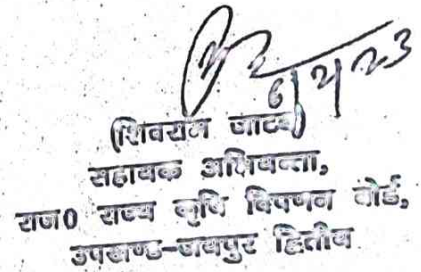 6/4/23
(शिवराम जाटव)
सहायक अभियन्ता,
राज0 राज्य कृषि विपणन बोर्ड,
उपखण्ड-जयपुर द्वितीय